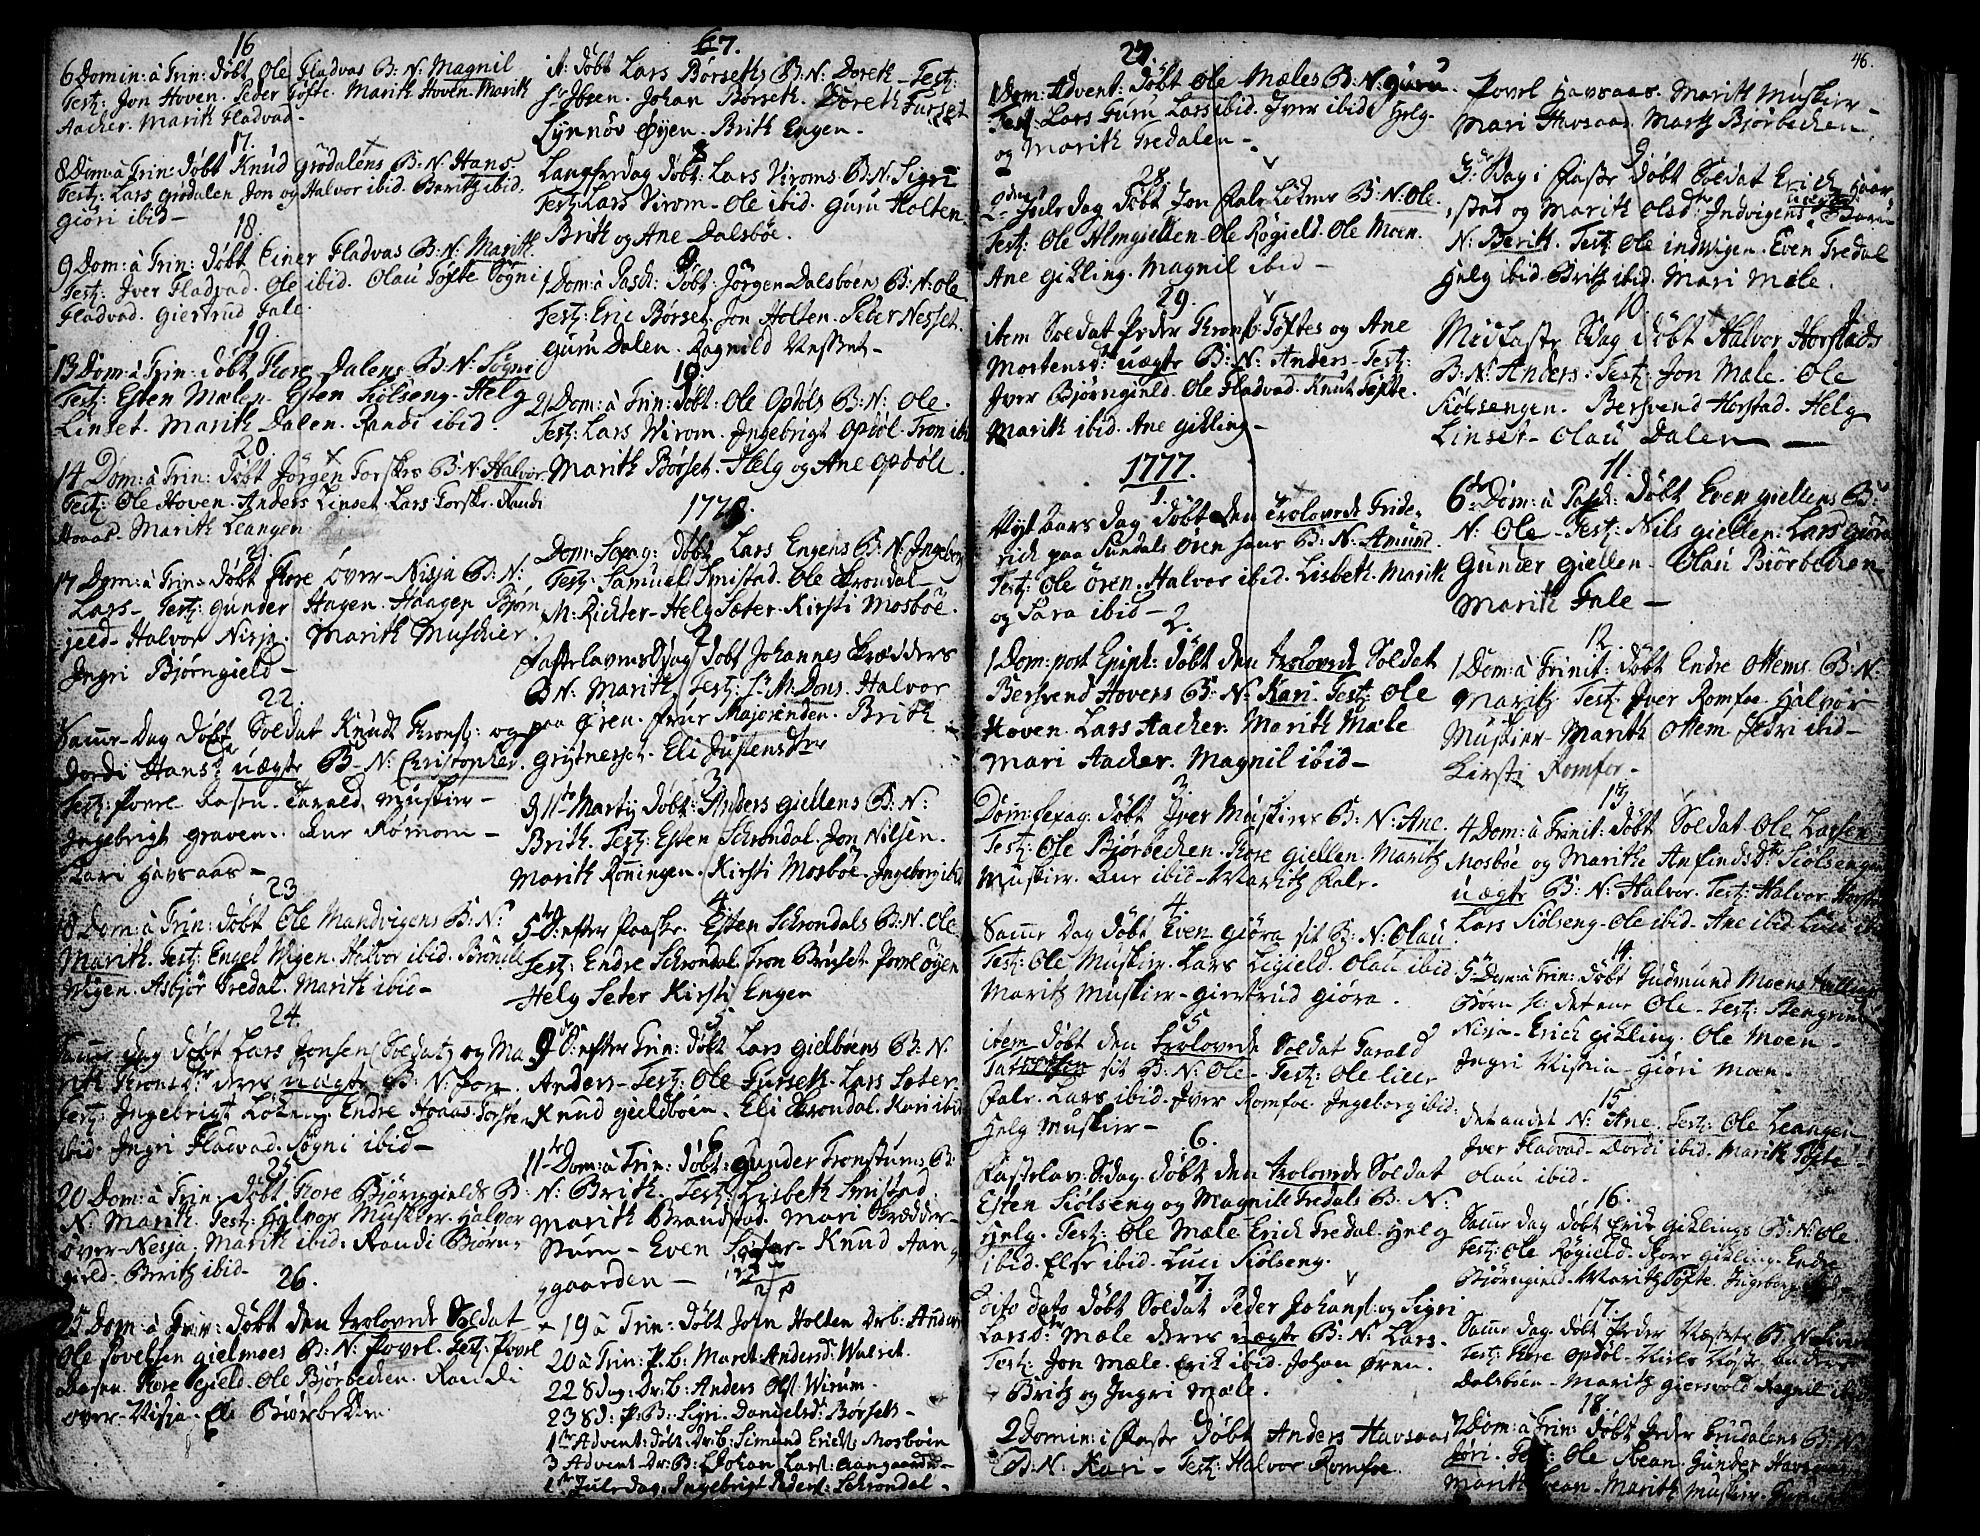 16
6 Domin: à Trin: døbt Ole Fladvas B: N: Magnil
Test: Jon Hoven. Peder Tøfte. Marith Hoven. Marith
Aacher. Marith Fladvad-
17.
8 Dom: à Trin: døbt Knud Grødalens B: N: Hans
Test: Lars Grødalen Jon og Halvor ibid. Baritz ibid.
Giøri ibid-
18.
9 Dom: à Trin: døbt Einer Fladvas B: N: Marith.
Test: Iver Fladvad. Ole ibid. Olau Tøfte Søgni
Fladvad. Giertrud Fale.
19.
13 Dom: à Trin: døbt Tore Dalens B: N: Søgni
Test: Esten Mælen. Esten Siølseng. Helg
Linset. Marith Dalen. Randi ibid.
20.
14 Dom: à Trin: døbt Jørgen Torskes B: N: Halvor
Test: Ole Hoven. Anders Linset Lars Torske. Randi
Hoaas. Marith Leangen
21.
17 Dom: à Trin: døbt Tore Over-Nisja B: N:
Lars- Test: Gunder Hagen. Haagen Bjørn
gield- Halvor Nisja. Marith Muschier.
Ingri Bjørngield-
22.
Samme Dag døbt Soldat Knudt Trons: og
Dordi Hansdr uægte B: N: Christopher.
Test: Povel Rasen. Tarald Muskier-
Ingebrigt Graven. Ane Rømom-
Kari Havsaas-
23.
18 Dom: à Trin: døbt Ole Mandvigens B: N:
Marith. Test: Engel Wigen. Halvor ibid.
Wigen. Asbjør Tredal. Marith ibid-
24.
Samme Dag døbt Lars Jonsen (Soldat) og Ma
rith Tronsdr deres uægte B: N: Jon
Test: Ingebrigt Løkens. Endre Hoaas. Torsten
ibid. Ingri Fladvad. Søgni ibid-
25
20 Dom: à Trin: døbt Tore Bjørngields B:
N: Marith. Test: Halvor Muskier. Halvor
Over-Nesja. Marith ibid. Randi Biørn-
gield. Beritz ibid-
26.
25 Dom: à Trin: døbt den trolovede Soldat
Ole Povelsen Gielmoes B: N: Povel. Test: Povel
Rasen. Tore Gield. Ole Bjørbechen. Randi
Over-Nisja. Eli Biørbechen.
67.
it: døbt Lars Børseths B: N: Doreth- Test:
Sr Ibsen. Johan Børseth. Doreth Furset
Synnøv Øyen- Brith Engen-
8
Langfredag døbt: Lars Viroms. B: N: Sigri
Test: Lars Virom- Ole ibid. Guru Holten.
Brith og Ane Dalsbøe.
9
1 Dom: à Pasch: døbt: Jørgen Dalsboens B: N: Ole
Test: Eric Børset. Jon Holten. Peter Nesset.
Guru Dalen. Ragnild Nesset-
10.
21 Dom: à Trin: døbt: Ole Opdøls B: N: Ole.
Test: Lars Wirom. Ingebrigt Opdøl. Tron ibid
Marith Børset. Helg og Ane Opdøl.
1778.
Dom: Sexag: døbt Lars Engens B: N: Ingebor
Test: Samuel Smistad. Ole Skrondal-
M: Richter- Helg Sæter. Kirsti Mosbøe.
2
Fastelavens Sdag døbt Johannes Brædders
B: N: Marith, Test: Sr M: Dons. Halvor
paa Øren. Frue Majorinden. Brith
Grytneset. Eli Justensdtr
3
D 11te Martij døbt: Anders Giellens B: N:
Brith. Test: Esten Schrondal. Jon Nilsen.
Marith Rønningen. Kirsti Mosbøe. Ingeborg ibid
4
5te D: efter Paaske. Esten Schrondals B: N: Ole
Test: Endre Schrondal. Tron Børset. Povel Øyen
Helg Seter Kirsti Engen
5.
9de D: efter Trin: døbt Lars Gielbøens B: N.
Anders- Test: Ole Furseth. Lars Sæter-
Knud Gieldbøen. Eli Skrondal. Kari ibid
6
11te Dom: à Trin: døbt: Gunder Tronstuens B:
N: Brith- Test: Lisbeth Smistad.
Marith Brandstad. Mari Brædder-
Støen- Even Sæter- Knud Aan-
gaarden-
19 à Trin: døbt John Holten Dr: B: Anders
20 à Trin: P: B: Maret Andersd: Walset.
22 Sdag: Dr: B: Anders Ols: Wirum.
23 Sd: P: B: Sigri. Danielsd: Børseth-
1te Advent: døbt: Dr: B: Simund Erichs: Mosboen
3 Advent- Dr: B: Johan Lars: Aangaarden-
1te Juledag: Ingebrigt Peders: Schrondal-
27.
1 Dom: Advent: døbt Ole Mæles B: N: Guru.
Test: Lars Furu. Lars ibid. Iver ibid Helg-
og Marith Tredalen-
28
2den Juledag døbt Jon Fale Løkens B: N: Ole.
Test: Ole Almgiellen. Ole Røgield. Ole Moen.
Ane Gikling. Magnil ibid-
29.
item Soldat Peder Trons: Tøftes og Ane
Mortensdr uægte B: N: Anders- Test:
Iver Bjørngield. Ole Fladvad. Knut Tøfte.
Marith ibid. Ane Gikling-
1777.
1.
Nyt Aars Dag døbt den trolovede Fride-
rich paa Sundals Øren hans B: N: Amund.
Test: Ole Øren. Halvor ibid. Lisbeth. Marith
og Sara ibid-
2.
1 Dom: post Epiph: døbt den trolovede Soldat
Bersvend Hovens B: N: Kari. Test: Ole
Hoven. Lars Aacher. Marith Mæle
Mari Aacher. Magnil ibid-
3.
Dom: Sexag. døbt Iver Muskiers B: N: Ane.
Test: Ole Bjørbechen. Tore Giellen. Maritz
Muskier. Ane ibid- Maritz Fale.
4
Samme Dag døbt Even Giøra sit B: N: Olau.
Test: Ole Muskier. Lars Ligield. Olau ibid
Maritz Muskier- Giertrud Giøra.
5
item døbt den trolovede Soldat Tarald
sit B: N: Ole- Test: Ole Lille
Fale. Lars ibid. Iver Romfoe. Ingeborg ibid.
Helg Muskier-
6.
Fastelav: Sdag. døbt den trolovede Soldat
Esten Siølseng og Magnild Tredals B: N:
Helg. Test: Ole Mæle. Erich Tredal. Helg
ibid. Else ibid. Luci Siølseng.
7
Dito dato døbt Soldat Peder Johans: og Sigri
Larsdr Mæle deres uægte B: N: Lars.
Test: Jon Mæle. Erich ibid. Johan Øren.
Britz og Ingri Mæle.
2 Domin: i Faste døbt Anders Havsaas
B: N: Kari- Test: Halvor Romfoe.
46.
Povel Havsaas. Marith Muskier-
Mari Havsaas. Maritz Bjørbechen.
9
3de Sdag i Faste døbt Soldat Erich Haar
stad og Marith Olsdr Indvigens uægte Barn
N: Berith. Test: Ole Indvigen. Even Tredal
Helg ibid. Britz ibid. Mari Mæle.
10.
Midfaste Sdag døbt Halvor Horstads
B: N: Anders. Test: Jon Mæle. Ole
Siølsengen. Bersvend Horstad. Helg
Linset- Olau Dalen-
11.
6te Dom: à Pasch: døbt Even Giellens B:
N: Ole- Test: Nils Giellen. Lars Giøra
Gunder Giellen- Olau Bjørbechen
Marith Fale-
12.
1 Dom: à Trinit: døbt Endre Ottems. B: N:
Maritz Test: Iver Romfoe. Halvor
Muskier- Marith Ottem Sidri ibid-
Kirsti Romfor-
13.
4 Dom: à Trinit: døbt Soldat Ole Larsen
Mosbøe og Marithe Anfindsdr Siølsengen
uægte B: N: Halvor. Test: Halvor Horstad
Lars Siølseng. Ole ibid. Ane ibid Luci ibid
14.
5te Dom: à Trin: døbt Gudmund Moens
Børn sc: det ene Ole- Test: Bengrund
Nisja- Erich Gikling. Ole Moen-
Ingri Nisja- Giøri Moen-
15.
det andet N: Ane. Test: Ole Leangen
Iver Fladvad- Dordi ibid. Marith Tøfte-
Olau ibid.
16.
Samme Dag døbt Erik Giklings B: N: Ole.
Test: Ole Røgield. Tore Gikling. Endre
Bjørngield. Maritz Tøfte. Ingeborg
17.
Samme Dag. døbt Peder B: N:
Test: Tore Opdøl- Anders
Dalsboen- Maritz Giersvold Ragnil ibid
18.
7 Dom: à Trin: døbt Peder Grudalens B: N:
Test: Ole Svean. Gunder Havsaas
Marith Svean- Marith Muskier.